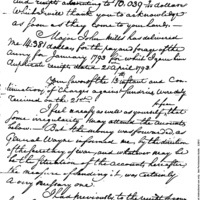 and receipt amounting to 10.030 75 dollars
Which I will thank you to acknowledge
as soon as they come to your hands.
Major John Mills has delivered
me 14.381 dollars for the pay and forage of the
Army for January 1793 for which I gave him
duplicate receipts dated 21 April 1793
Your favor of the instant and Con-
tinuation of Charges against sundries were duly
received on the 21st.
I feel uneasy as well as yourself, that
some irregularity may attend the accounts
below. But the money was forwarded as
General Wayne informed me, by the direction
of the Secretary of war, and whatever may be
the situation of the accounts hereafter
the measure of sending it, was certainly
a very necessary one.
I had previously to the receipt